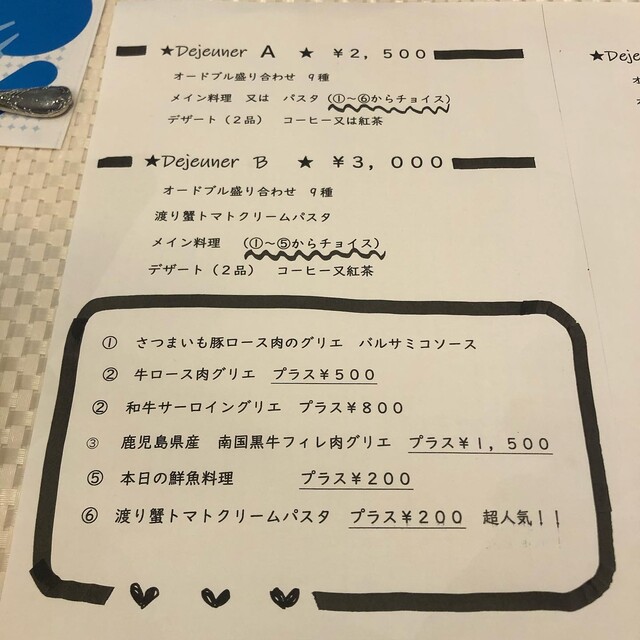 ★Dejeuner A ★ ￥２，５００
オードブル盛り合わせ　９種
メイン料理　又は　パスタ（①～⑥からチョイス）
デザート（２品）　コーヒー又は紅茶
★Dejeuner B ★ ￥３，０００
オードブル盛り合わせ　９種
渡り蟹トマトクリームパスタ
メイン料理　（①～⑤からチョイス）
デザート（２品）　コーヒー又紅茶
①　さつまいも豚ロース肉のグリエ　バルサミコソース
②　牛ロース肉グリエ　プラス￥５００
②　和牛サーロイングリエ　プラス￥８００
③　鹿児島県産　南国黒牛フィレ肉グリエ　プラス￥１，５００
⑤　本日の鮮魚料理　プラス￥２００
⑥　渡り蟹トマトクリームパスタ　プラス￥２００　超人気！！
★Deje